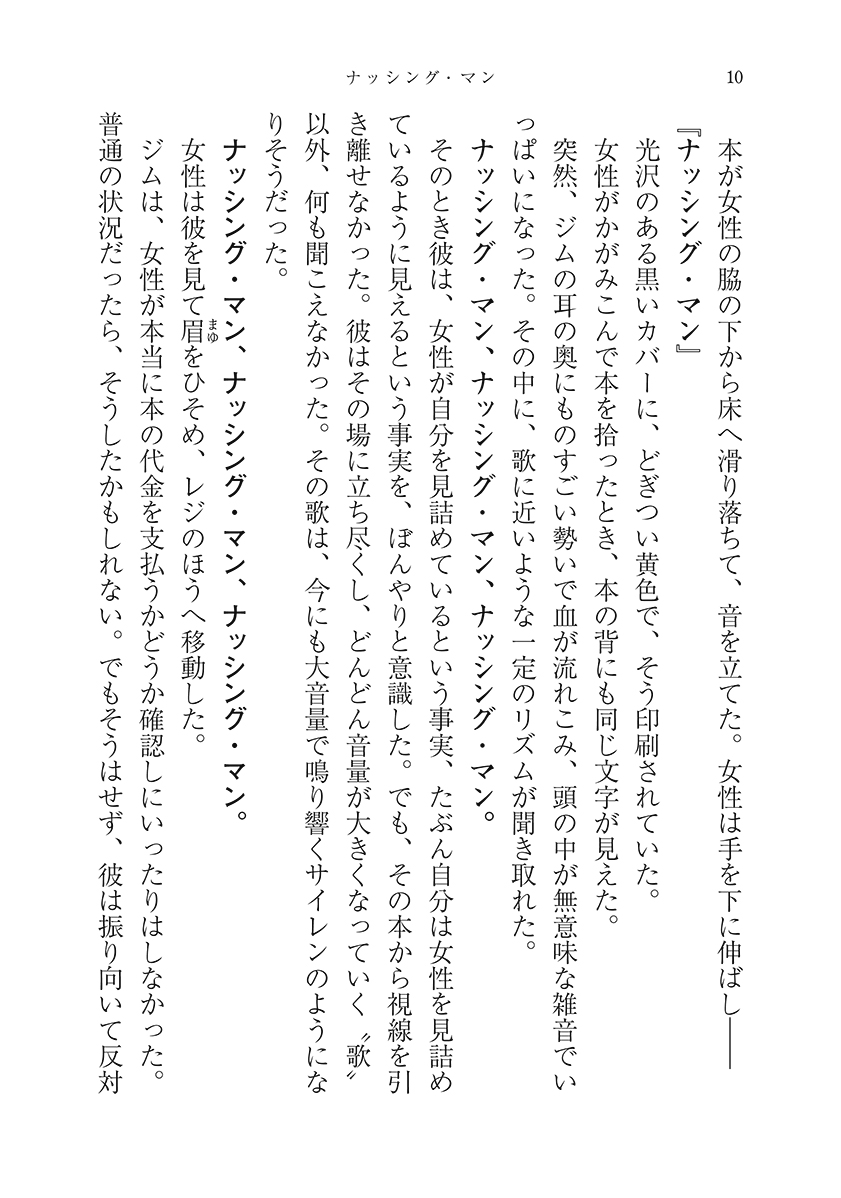 ナッシング・マン
10
本が女性の脇の下から床へ滑り落ちて、音を立てた。女性は手を下に伸ばし――
『ナッシング・マン』
光沢のある黒いカバーに、どぎつい黄色で、そう印刷されていた。
女性がかがみこんで本を拾ったとき、本の背にも同じ文字が見えた。
突然、ジムの耳の奥にものすごい勢いで血が流れこみ、頭の中が無意味な雑音でい
っぱいになった。その中に、歌に近いような一定のリズムが聞き取れた。
ナッシング・マン、ナッシング・マン、ナッシング・マン。
そのとき彼は、女性が自分を見詰めているという事実、たぶん自分は女性を見詰め
ているように見えるという事実を、ぼんやりと意識した。でも、その本から視線を引
き離せなかった。彼はその場に立ち尽くし、どんどん音量が大きくなっていく〝歌〟
以外、何も聞こえなかった。その歌は、今にも大音量で鳴り響くサイレンのようにな
りそうだった。
ナッシング・マン、ナッシング・マン、ナッシング・マン。
女性は彼を見て眉まゆをひそめ、レジのほうへ移動した。
ジムは、女性が本当に本の代金を支払うかどうか確認しにいったりはしなかった。
普通の状況だったら、そうしたかもしれない。でもそうはせず、彼は振り向いて反対